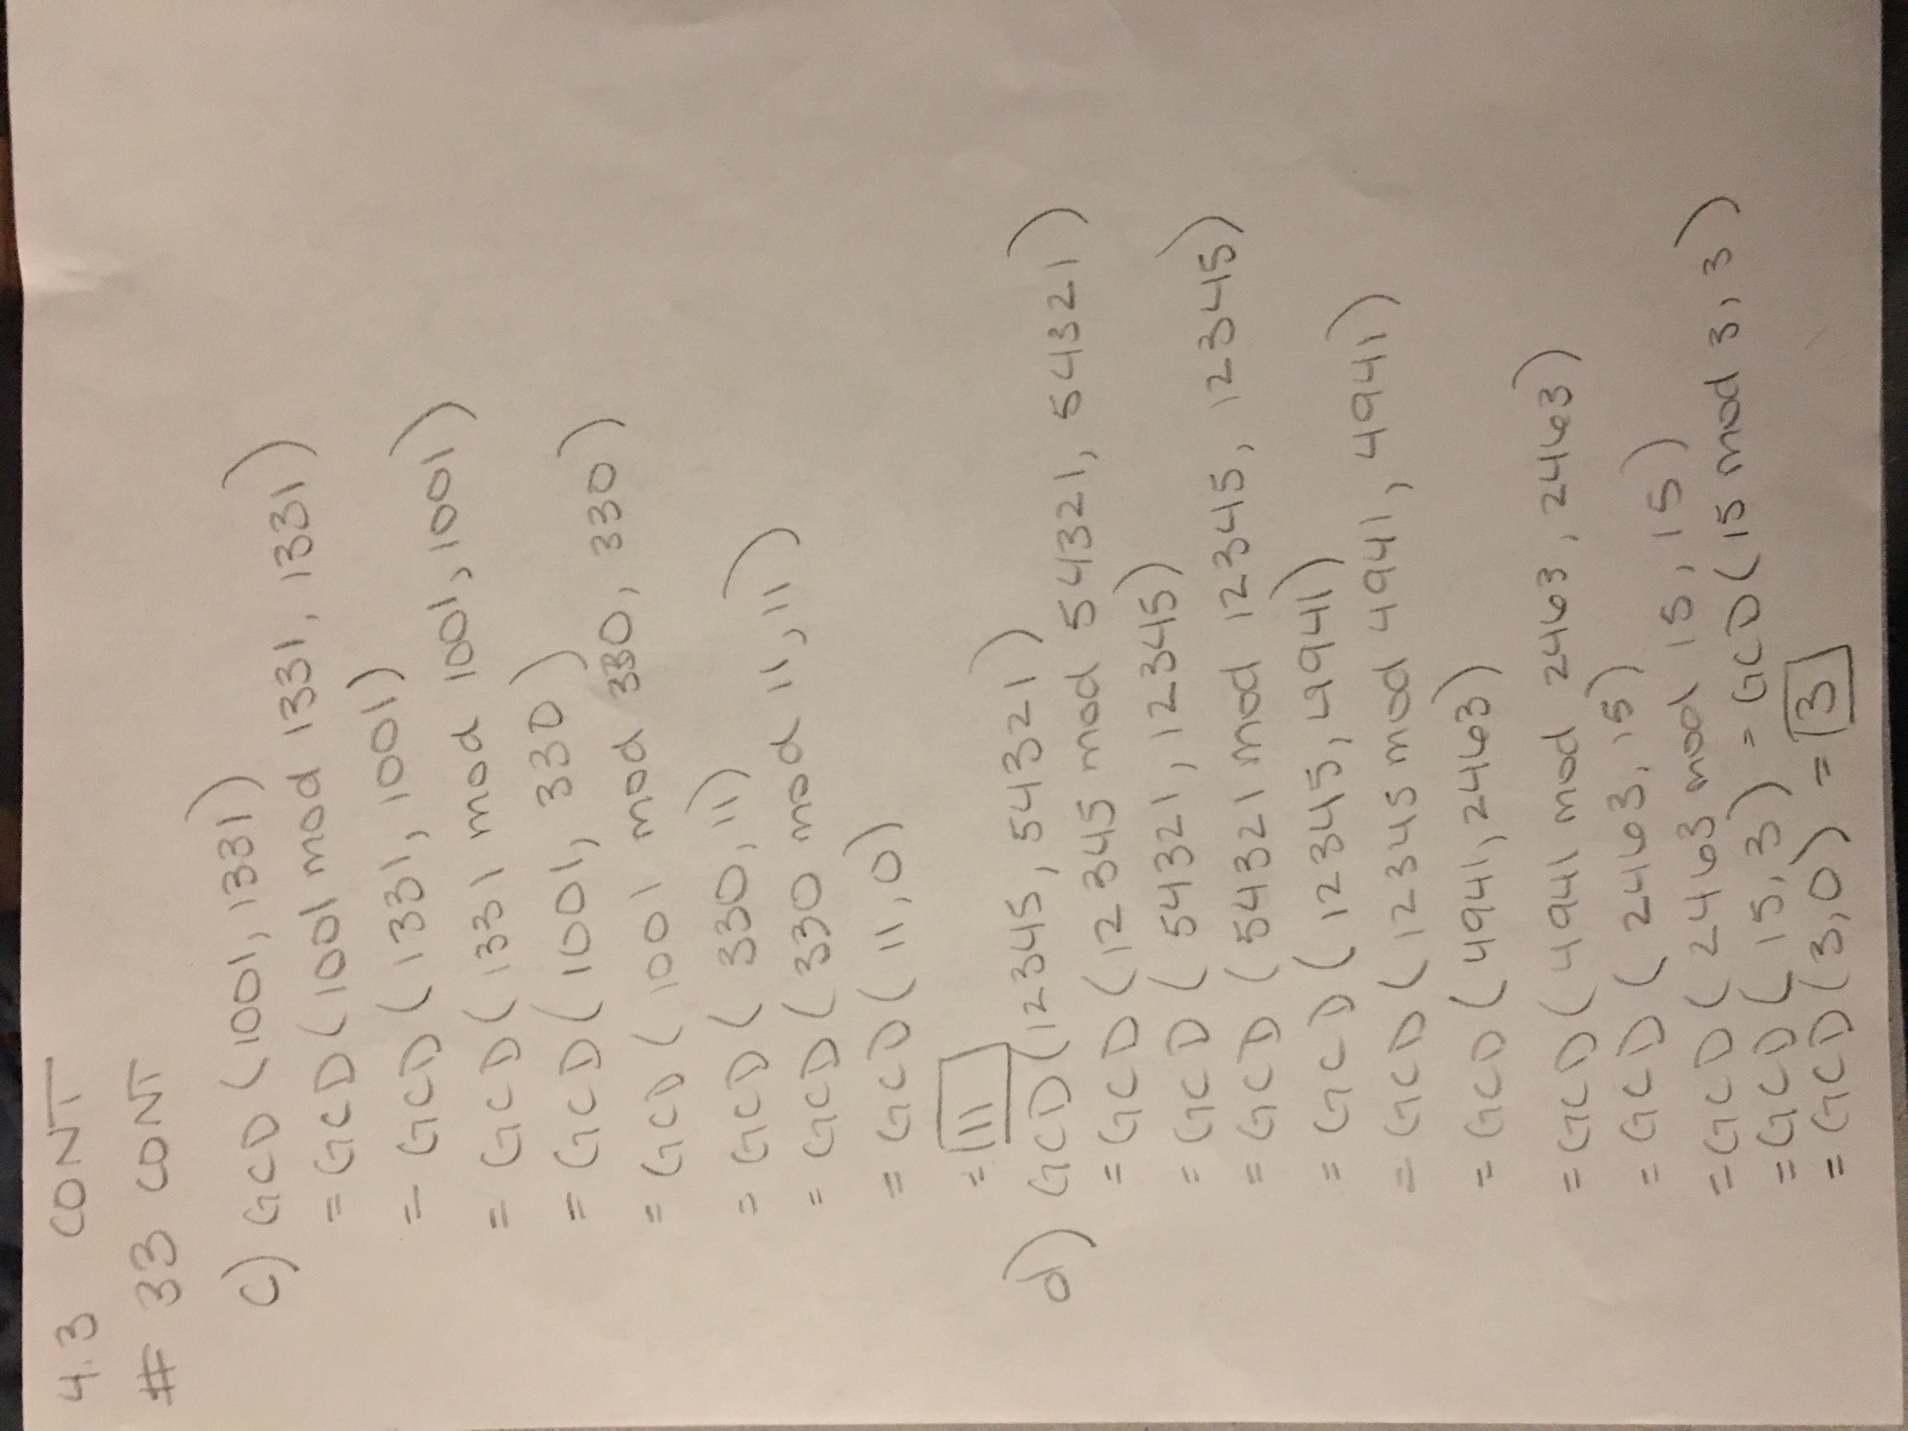 4.3 CONT
# 33 CONT
c) GCD (1001, 1331)
= GCD (1001 mod 1331, 1331)
= GCD (1331, 1001)
= GCD (1331 mod 1001, 1001)
= GCD (1001, 330)
= GCD (1001 mod 330, 330)
= GCD (330, 11)
= GCD (330 mod 11, 11)
= GCD (11, 0)
= 11
d) GCD (12345, 54321)
= GCD (12345 mod 54321, 54321)
= GCD (54321, 12345)
= GCD (54321 mod 12345, 12345)
= GCD (12345, 4941)
= GCD (12345 mod 4941, 4941)
= GCD (4941, 2463)
= GCD (4941 mod 2463, 2463)
= GCD (2463, 15)
= GCD (2463 mod 15, 15)
= GCD (15, 3) = GCD (15 mod 3, 3)
= GCD (3, 0) = 3